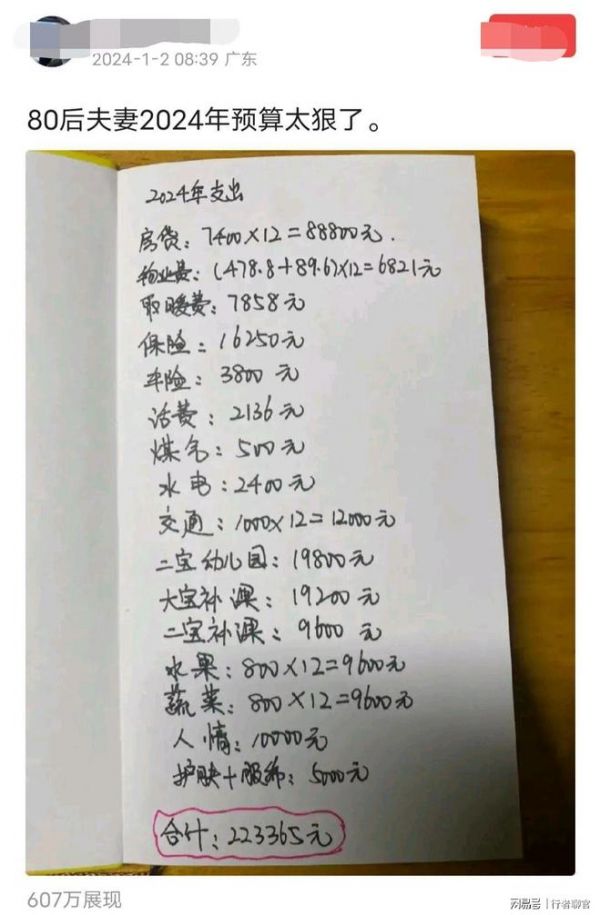 2024-1-2 08:39 广东
80后夫妻2024年预算太狠了。
2024年支出
房贷：7400×12=88800元.
物业费：(478.8+89.6)×12=6821元
取暖费：7858元
保险：16250元
车险：3800元
话费：2136元
煤气：500元
水电：2400元
交通：1000×12=12000元
二宝幼儿园：19800元
大宝补课：19200元
二宝补课：9600元
水果：800×12=9600元
蔬菜：800×12=9600元
人情：10000元
护肤+服饰：5000元
合计：223365元
607万展现
网易号|行者聊官